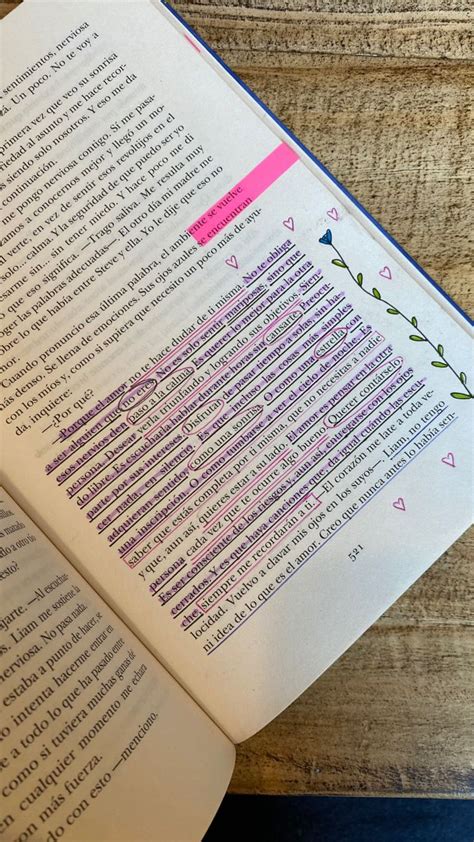 s sentimientos, nerviosa
á. Un poco. No te voy a
primera vez que veo su sonrisa
riedad al asunto y me hace recor-
s siendo solo nosotros. Y eso me da
continuación.
me pongo nerviosa contigo. Sí me pasa
zamos a conocernos mejor y llegó un mo-
l verte, en vez de sentir esos revoltijos en el
solo... calma. Y la seguridad de que puedo ser yo
esarme sin... sin tener miedo. Y hace poco me di
o que eso significa. —Trago saliva. Me resulta muy
oger las palabras adecuadas—. El otro día mi madre me
obre lo que había entre Steve y ella. Yo le dije que eso no
mor.
Cuando pronuncio esa última palabra, el ambiente se vuelve
más denso. Se llena de emociones. Sus ojos azules se encuentran
con los míos y, como si supiera que necesito un poco más de ayu-
da, inquiere:
—¿Por qué?
—Porque el amor no te hace dudar de ti misma. No te obliga
a ser alguien que no eres. No es solo sentir mariposas, sino que
esos nervios den paso a la calma. Es querer lo mejor para la otra
persona. Desear verla triunfando y logrando sus objetivos. Sien-
do libre. Es escucharla hablar durante horas sin cansarte. Preocu-
parte por sus intereses. Disfrutar de pasar tiempo a solas, sin ha-
cer nada, en silencio. Es que incluso las cosas más simples
adquieran sentido. Como una sonrisa. O como una estrella con
una inscripción. O como tumbarse a ver el cielo de noche. Es
saber que estás completa por ti misma, que no necesitas a nadie,
y que, aun así, quieres estar a su lado. El amor es pensar en la otra
persona cada vez que te ocurre algo bueno. Querer contárselo.
Es ser consciente de los riesgos y, aun así, entregarse con los ojos
cerrados. Y es que haya canciones que, da igual cuándo las escu-
che, siempre me recordarán a ti. —El corazón me late a toda ve-
locidad. Vuelvo a clavar mis ojos en los suyos—. Liam, no tengo
ni idea de lo que es el amor. Creo que nunca antes lo había sen-
521
ajarte. —Al escucha
s. Liam me sostiene a
nerviosa. No pasa nada.
estaba a punto de hacer, se
o intenta hacerme entrar en
e a todo lo que ha pasado entre
como si tuviera muchas ganas de
en cualquier momento me echara
con más fuerza.
lo con esto —menciono.